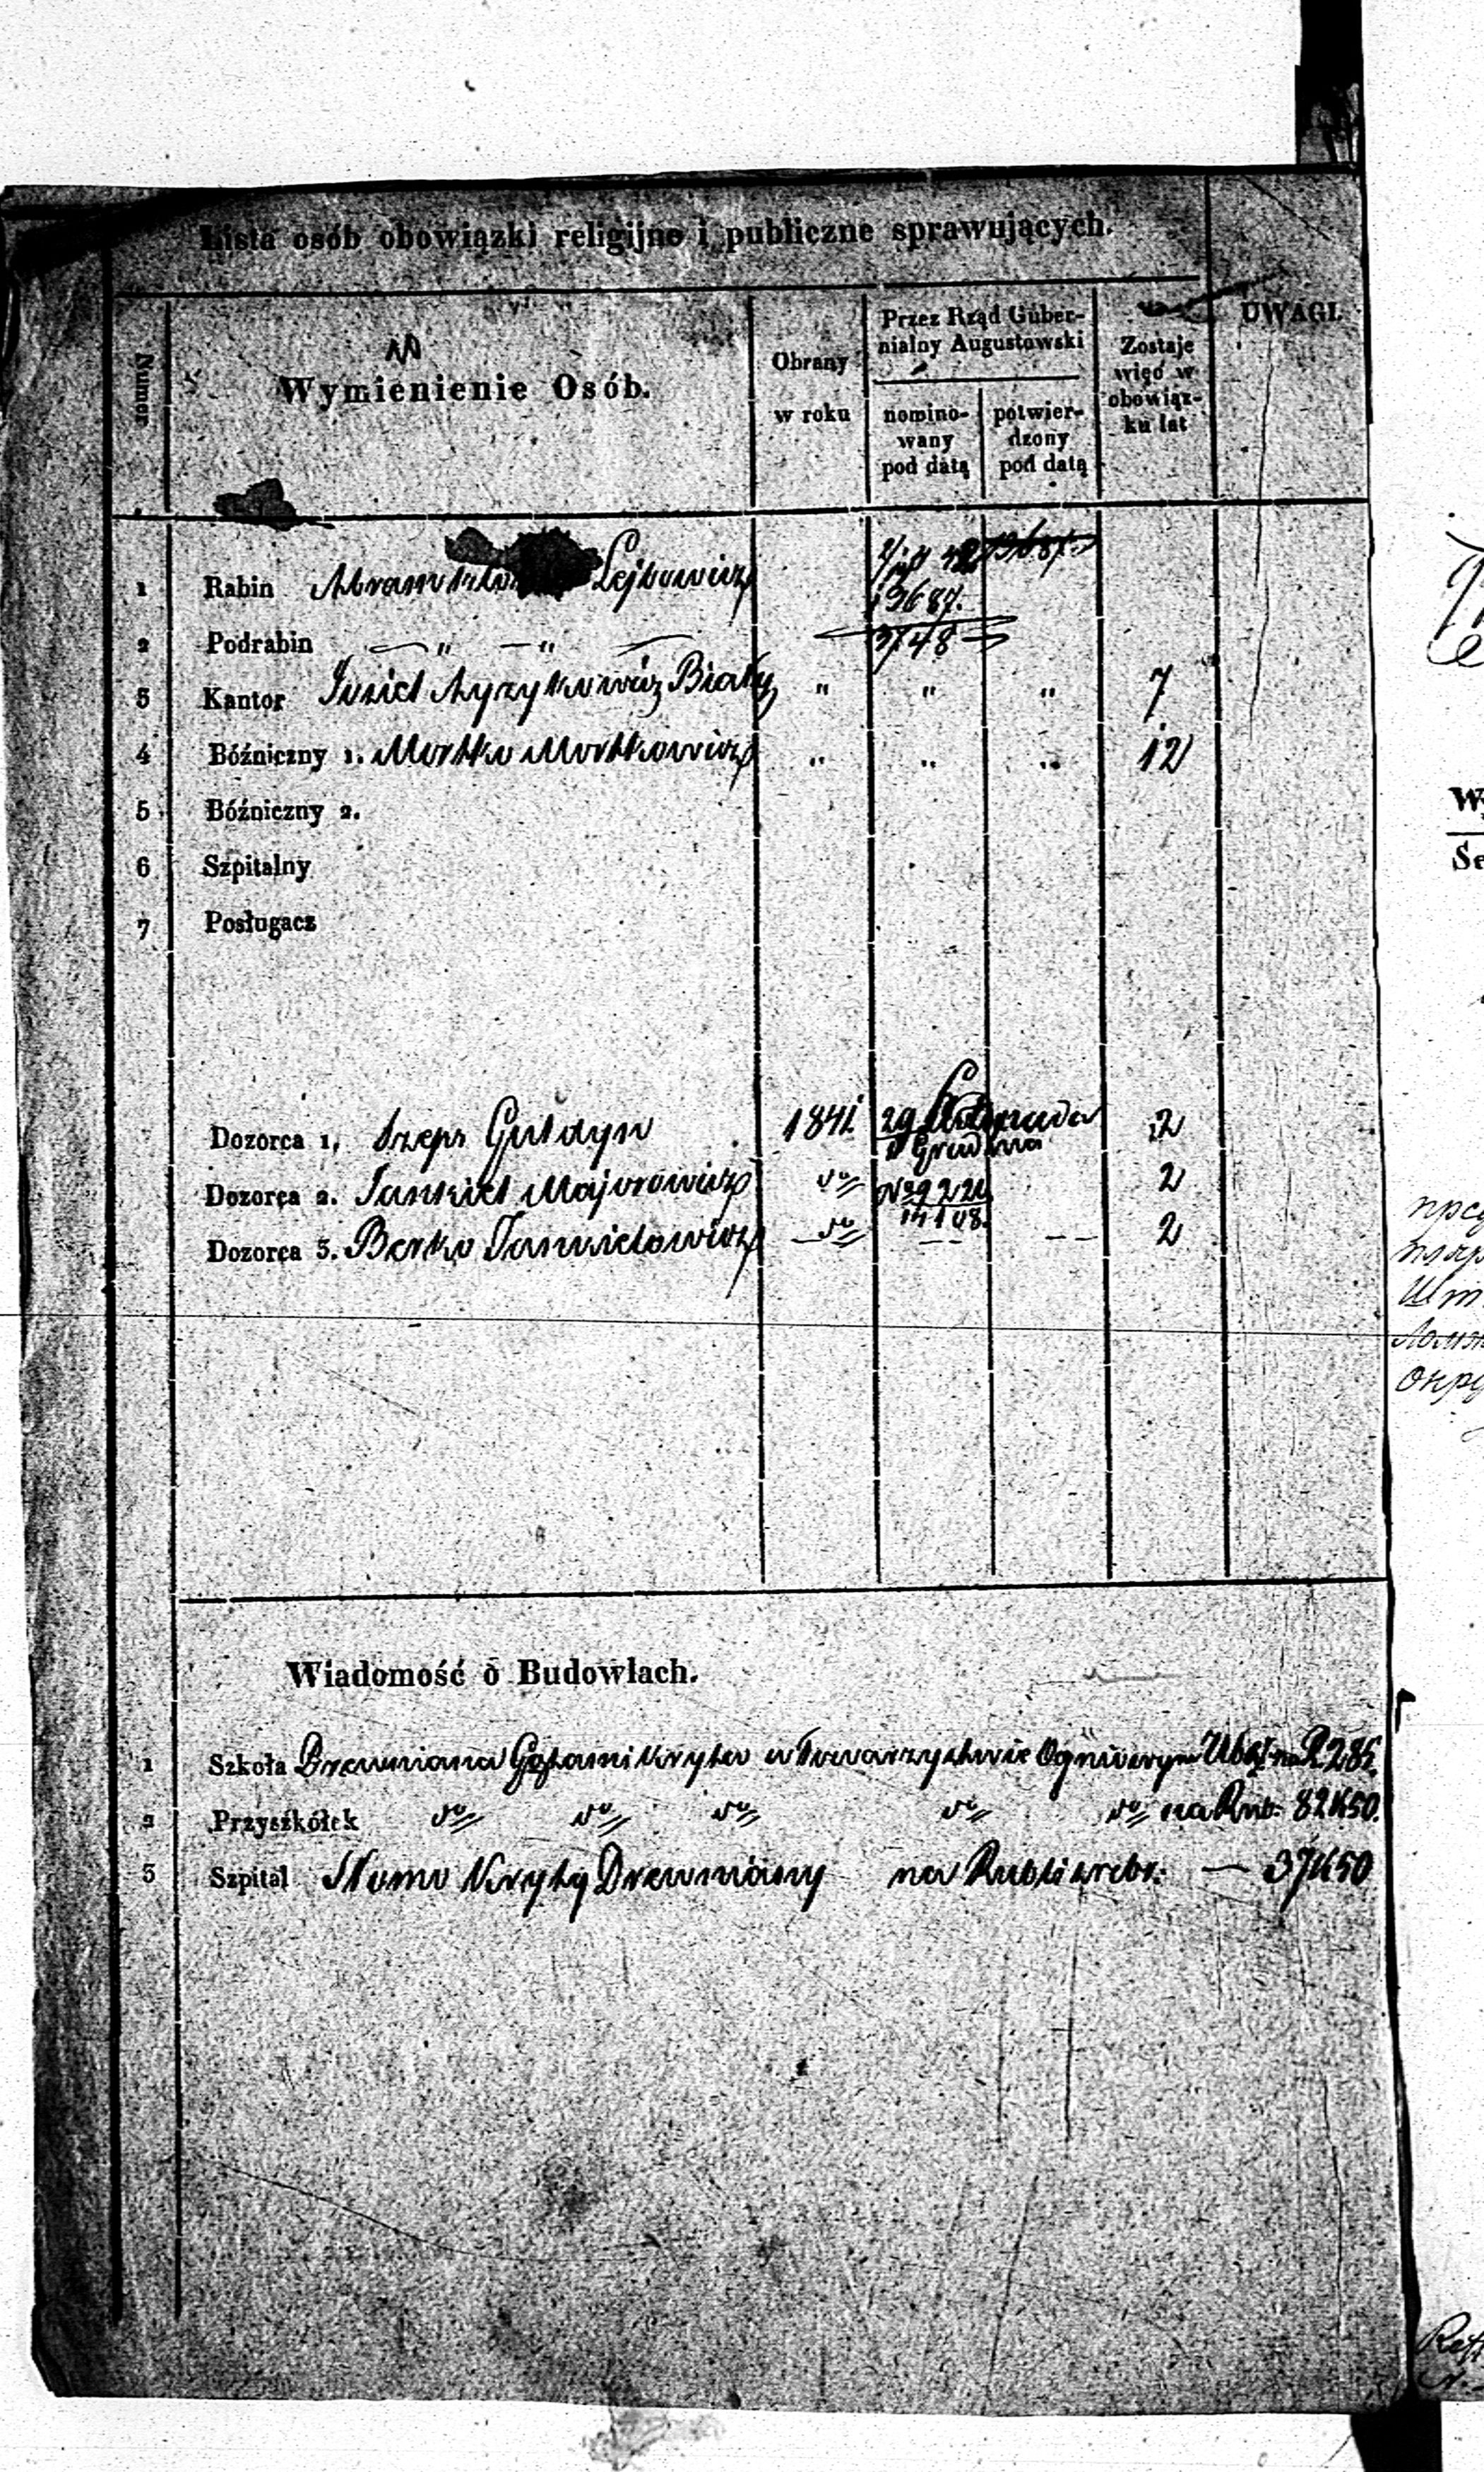 Lista osób obowiązki religijne i publiczne sprawujących.
Numer
Wymienienie Osób.
Obrany w roku
Przez Rząd Guber-
nialny Augustowski
nomino-
wany
pod datą
potwier-
dzony
pod datą
Zostaje
więc w
obowiąz-
ku lat
UWAGI.
1 Rabin Abram Lejbowicz
13687.
3748
2 Podrabin „ „
3 Kantor Biały „ „ „ 7
4 Bóźniczny 1. Mortko Mortkowicz „ „ „ 12
5 Bóźniczny 2.
6 Szpitalny
7 Posługacz
Dozorca 1, Szeps Guldyn 1841 29 Listopada 2
Grudnia
Dozorca 2. Jankiel Majorowicz do 2
14108.
Dozorca 3. Berko Jankielowicz do 2
Wiadomość o Budowlach.
1 Szkoła Drewniana Gątami kryta w Towarzystwie Ogniowym na R 285.
2 Przyszkółek do do do do do na Rub: 82 K 50.
3 Szpital Słomą Kryty Drewniany na Rubli srebr: — 37 K 50